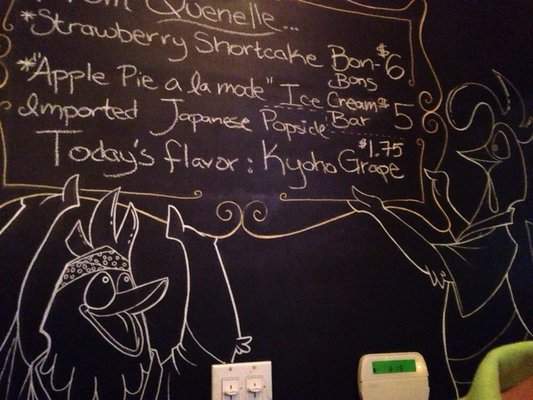 From Quenelle...
*Strawberry Shortcake Bon-Bons $6
*"Apple Pie a la mode" Ice Cream Bar $5
Imported Japanese Popsicle
Today's flavor: Kyoho Grape $1.75